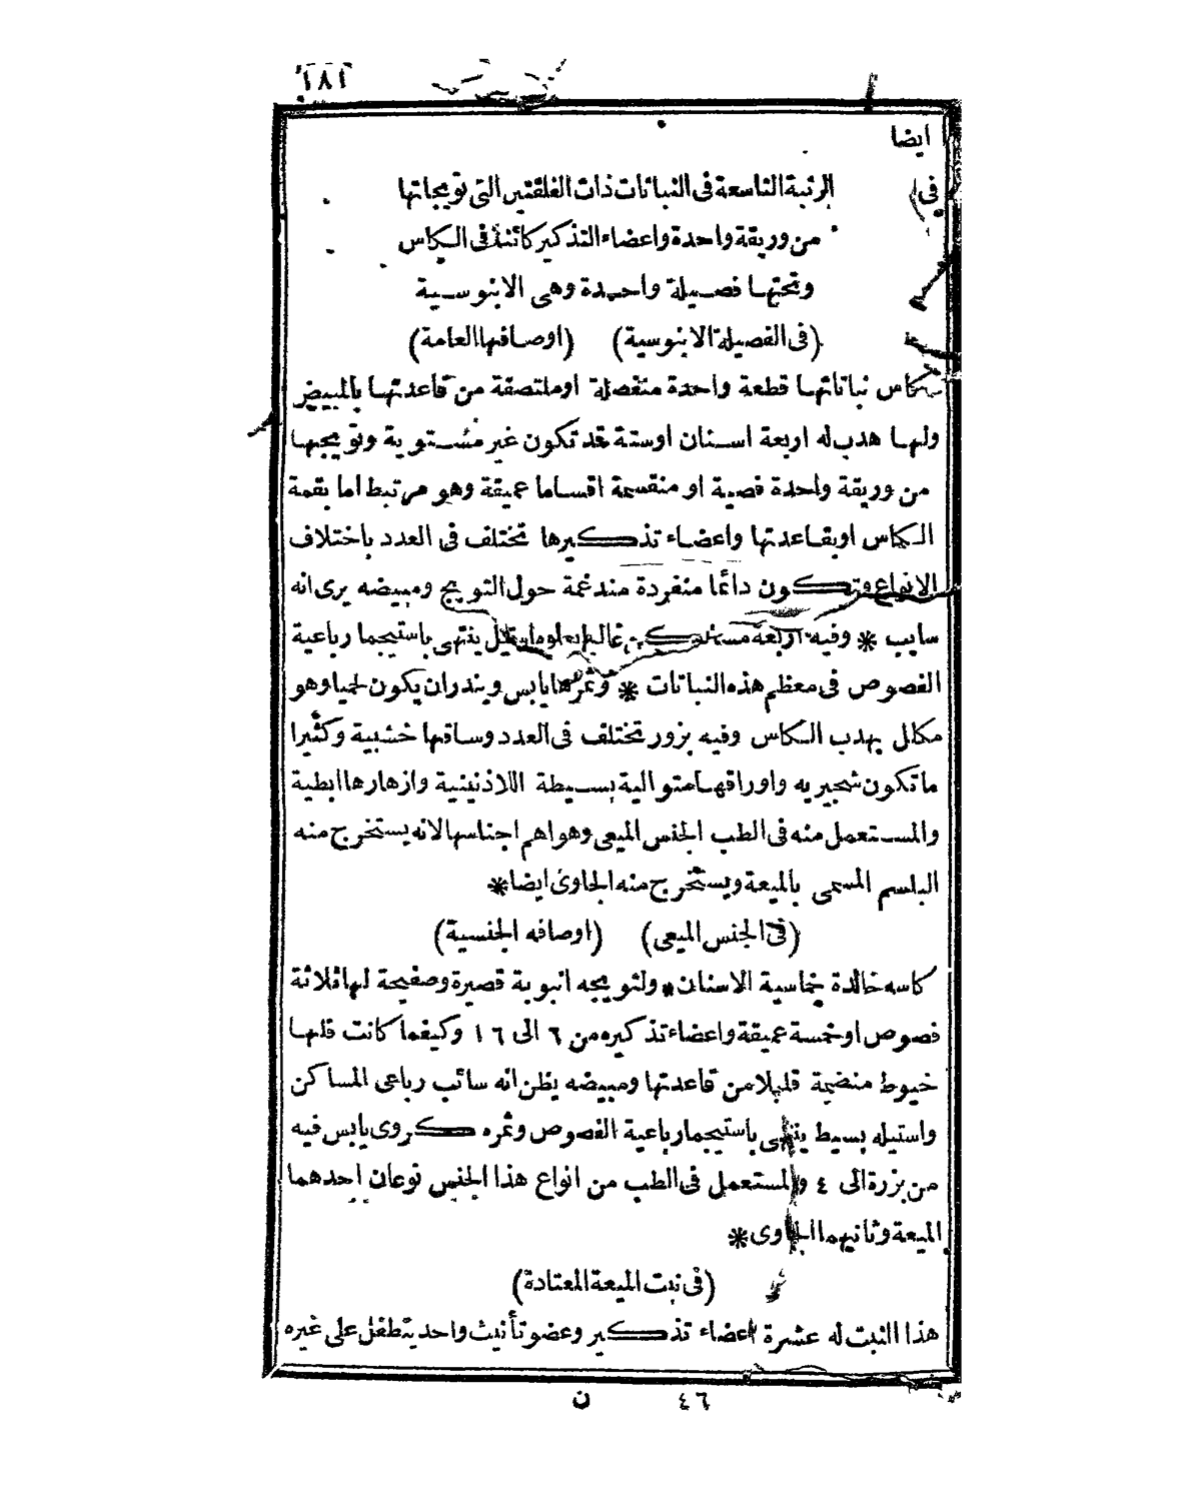 ١٨١
ايضا
الرتبة التاسعة فى النباتات ذات الفلقتين التى تويجاتها
من وريقة واحدة واعضاء التذكير كائنة فى الكاس
وتحتها فصيلة واحدة وهى الابنوسية
(فى الفصيلة الابنوسية) (اوصافها العامة)
كاس نباتاتها قطعة واحدة منفصلة او ملتصقة من قاعدتها بالمبيض
ولها هدب له اربعة اسنان اوستة قد تكون غير مستوية وتويجها
من وريقة واحدة فصية او منقسمة اقساما عميقة وهو مرتبط اما بقمة
الكاس او بقاعدتها واعضاء تذكيرها تختلف فى العدد باختلاف
الانواع وتكون دائما منفردة مندغمة حول التويج ومبيضه يرى انه
سايب * وفيه اربعة غالبا ينتهى باستيجما رباعية
الفصوص فى معظم هذه النباتات * وثمرها يابس ويندران يكون لحميا وهو
مكلل بهدب الكاس وفيه بزور تختلف فى العدد وساقها خشبية وكثيرا
ما تكون شجيريه واوراقها متوالية بسيطة اللاذنينية وازهارها ابطية
والمستعمل منه فى الطب الجنس الميعى وهو اهم اجناسها لانه يستخرج منه
البلسم المسمى بالميعة ويستخرج منه الجاوى ايضا *
(فى الجنس الميعى) (اوصافه الجنسية)
كاسه خالدة خماسية الاسنان * ولتويجه انبوبة قصيرة وصفيحة لها ثلاثة
فصوص او خمسة عميقة واعضاء تذكيره من ٦ الى ١٦ وكيفما كانت فلها
خيوط منضمة قليلا من قاعدتها ومبيضه يظن انه سائب رباعى المساكن
واستيله بسيط ينتهى باستيجما رباعية الفصوص وثمره كروى يابس فيه
من بزرة الى ٤ والمستعمل فى الطب من انواع هذا الجنس نوعان احدهما
الميعة وثانيهما الجاوى *
(فى نبت الميعة المعتادة)
هذا النبت له عشرة اعضاء تذكير وعضو تأنيث واحد يتطفل على غيره
٤٦ ن